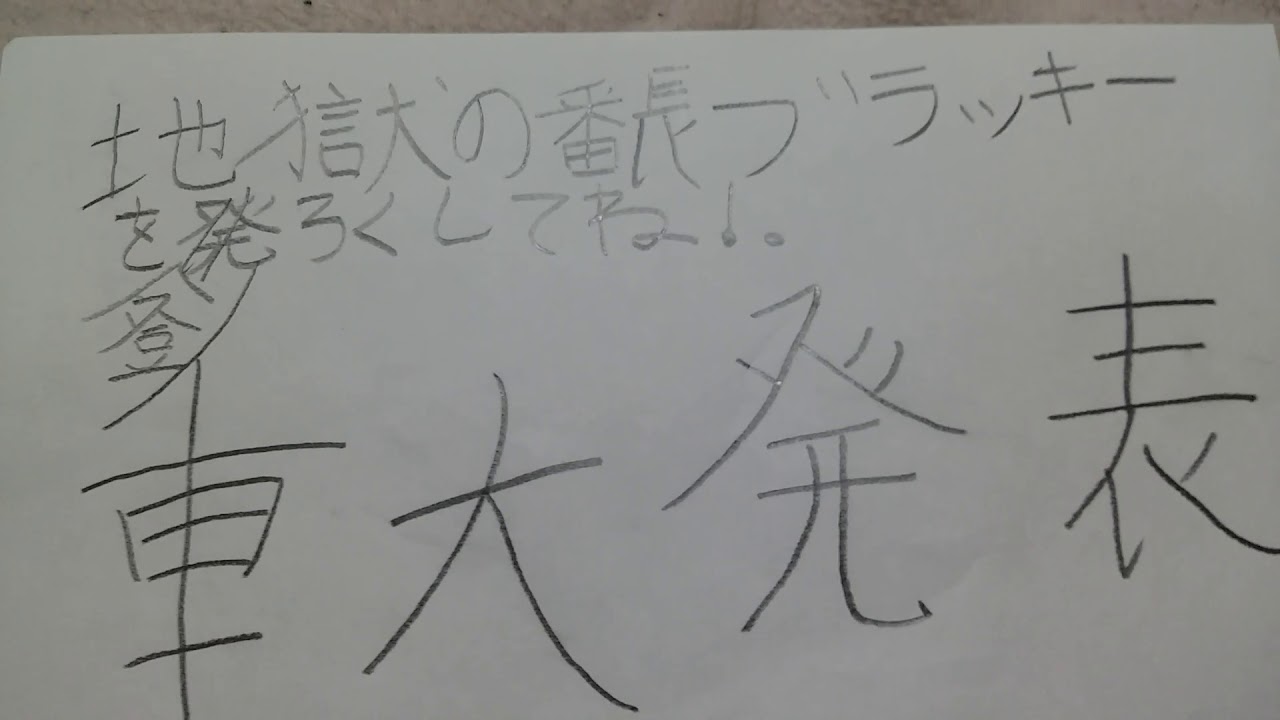 地獄の番長ブラッキー
を登ろくしてね!。
車大発表